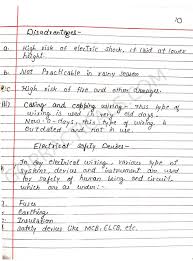 Disadvantages-
a. High risk of electric shock, if laid at lower
height.
b. Not Practicable in rainy season
c. High risk of fire and other damages.
(iii) Casing and capping wiring - This type of
wiring is used in very old days.
Now-a-days, this type of wiring is
outdated and not in use.
Electrical Safety Devices-
In any electrical wiring, various type of
systems, devices and instrument are used
for safety of human being and circuit
which are as under:-
1. Fuses
2. Earthing
3. Insulation
4. Safety devices like MCB, ELCB, etc.